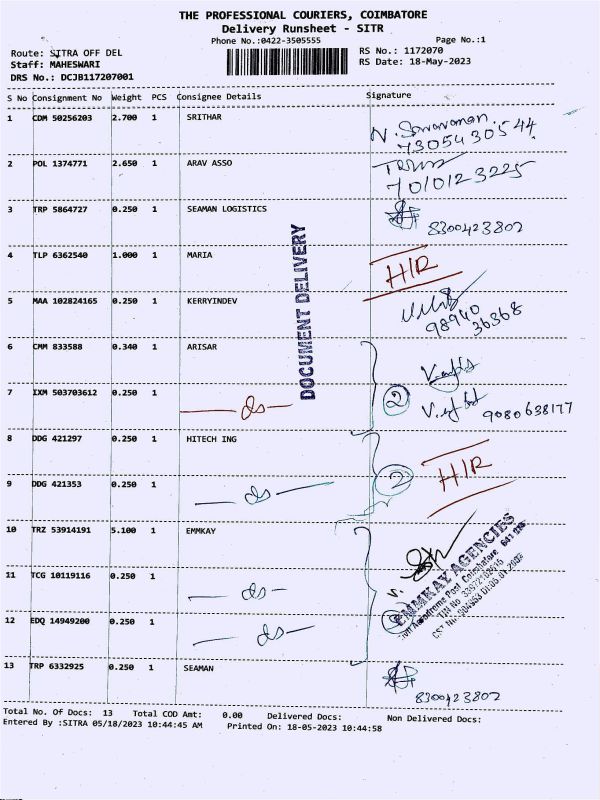 THE PROFESSIONAL COURIERS, COIMBATORE
Delivery Runsheet - SITR
Phone No.:0422-3505555 Page No.:1
Route: SITRA OFF DEL RS No.: 1172070
Staff: MAHESWARI RS Date: 18-May-2023
DRS No.: DCJB117207001
S No Consignment No Weight PCS Consignee Details Signature
1 CDM 50256203 2.700 1 SRITHAR
7305430544
2 POL 1374771 2.650 1 ARAV ASSO
7010123225
3 TRP 5864727 0.250 1 SEAMAN LOGISTICS
8300423802
4 TLP 6362540 1.000 1 MARIA H/R
5 MAA 102824165 0.250 1 KERRYINDEV
98940
36368
DOCUMENT DELIVERY
6 CMM 833588 0.340 1 ARISAR
7 IXM 503703612 0.250 1 ds 2 9080638177
8 DDG 421297 0.250 1 HITECH ING
9 DDG 421353 0.250 1 ds 2 H/R
10 TRZ 53914191 5.100 1 EMMKAY
11 TCG 10119116 0.250 1 ds
12 EDQ 14949200 0.250 1 ds
EMMKAY AGENCIES
Civil Aerodrome Post, Coimbatore 641 014
13 TRP 6332925 0.250 1 SEAMAN
8300423802
Total No. Of Docs: 13 Total COD Amt: 0.00 Delivered Docs: Non Delivered Docs:
Entered By :SITRA 05/18/2023 10:44:45 AM Printed On: 18-05-2023 10:44:58